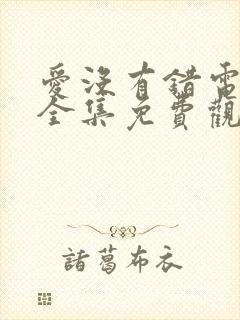 愛沒有錯電
全集免費觀
諸葛布衣